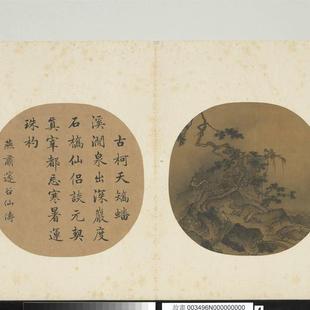 古柯夭蟜蟠
溪澗泉出深巖度
石橋仙侶談元契
真宰都忘寒暑運
珠杓
燕肅邃谷仙儔
故畫 003496N000000000